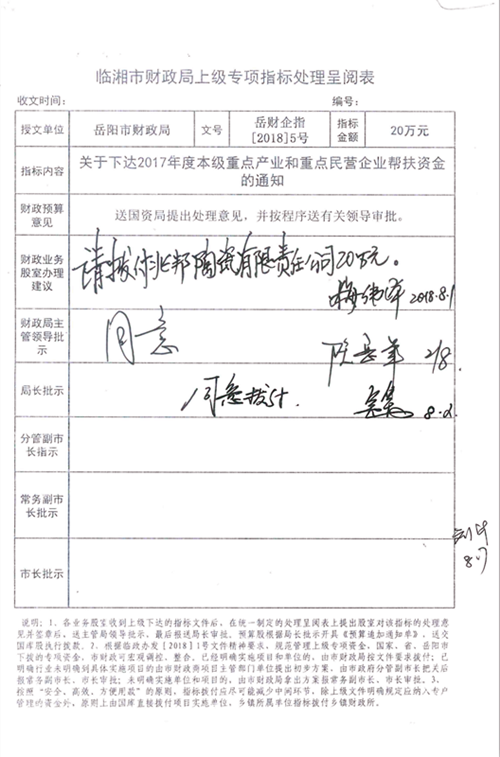 临湘市财政局上级专项指标处理呈阅表
收文时间： 编号：
授文单位 岳阳市财政局 文号 岳财企指[2018]5号 指标金额 20万元
指标内容 关于下达2017年度本级重点产业和重点民营企业帮扶资金的通知
财政预算意见 送国资局提出处理意见，并按程序送有关领导审批。
财政业务股室办理建议 请拨付兆邦陶瓷有限责任公司20万元。
2018.8.1
财政局主管领导批示 同意 2/8.
局长批示 同意拨付. 8.2
分管副市长指示
常务副市长批示
8.7
市长批示
说明：1、各业务股室收到上级下达的指标文件后，在统一制定的处理呈阅表上提出股室对该指标的处理意
见并签章后，送主管局领导批示，最后报送局长审批，预算股根据局长批示开具《预算追加通知单》，送交
国库股执行拨款。2、根据临政办发[2018]1号文件精神要求，规范管理上级专项资金，国家、省、岳阳市
下拨的专项资金，市财政可宏观调控、整合。已经明确实施项目和单位的，由市财政局按文件要求拨付；已
明确行业未明确到具体实施项目的由市财政局与项目主管部门单位提出初步方案，由市政府分管副市长把关后
报常务副市长、市长审批；未明确实施单位和项目的，由市财政局拿出方案报常务副市长、市长审批。3、
按照“安全、高效、方便用款”的原则，指标拨付应尽可能减少中间环节，除上级文件明确规定应纳入专户
管理的资金外，原则上由国库直接拨付项目实施单位，乡镇所属单位指标拨付乡镇财政所。